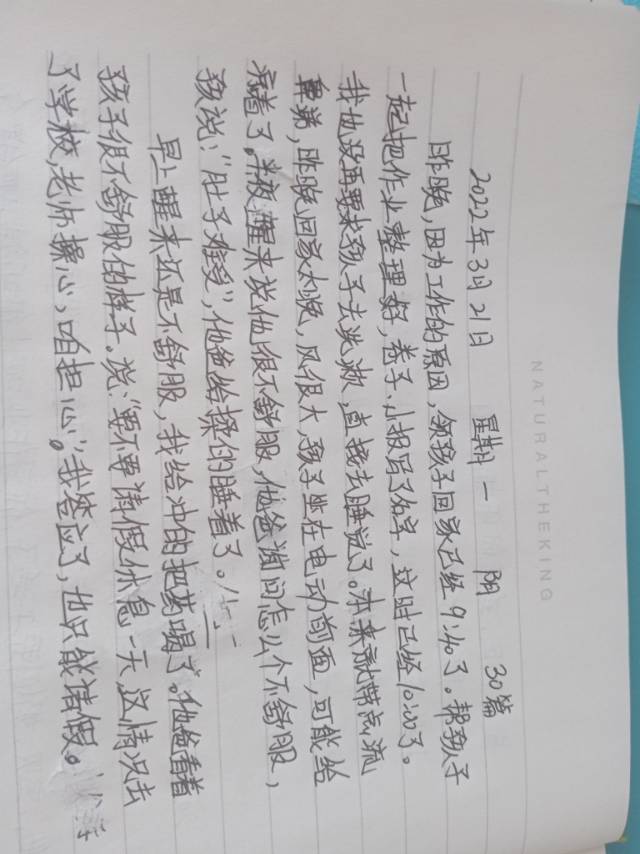 NATURALTHEKING
2022年3月21日 星期一 阴 30篇
昨晚,因为工作的原因,领孩子回家已经9:40了。帮孩子
一起把作业整理好,卷子、小报写了名字,这时已经10:00了。
我也没再要求孩子去洗漱,直接去睡觉了。本来就带点流
鼻涕,昨晚回家太晚,风很大,孩子坐在电动前面,可能给
凉着了。半夜醒来说他很不舒服,他爸询问怎么个不舒服,
孩说:“肚子难受”,他爸给揉的睡着了。
早上醒来还是不舒服,我给冲的把其喝了。他爸看着
孩子很不舒服的样子。说:“要不要请假休息一天,这情况去
了学校,老师操心,咱担心”。我答应了,也只能请假。